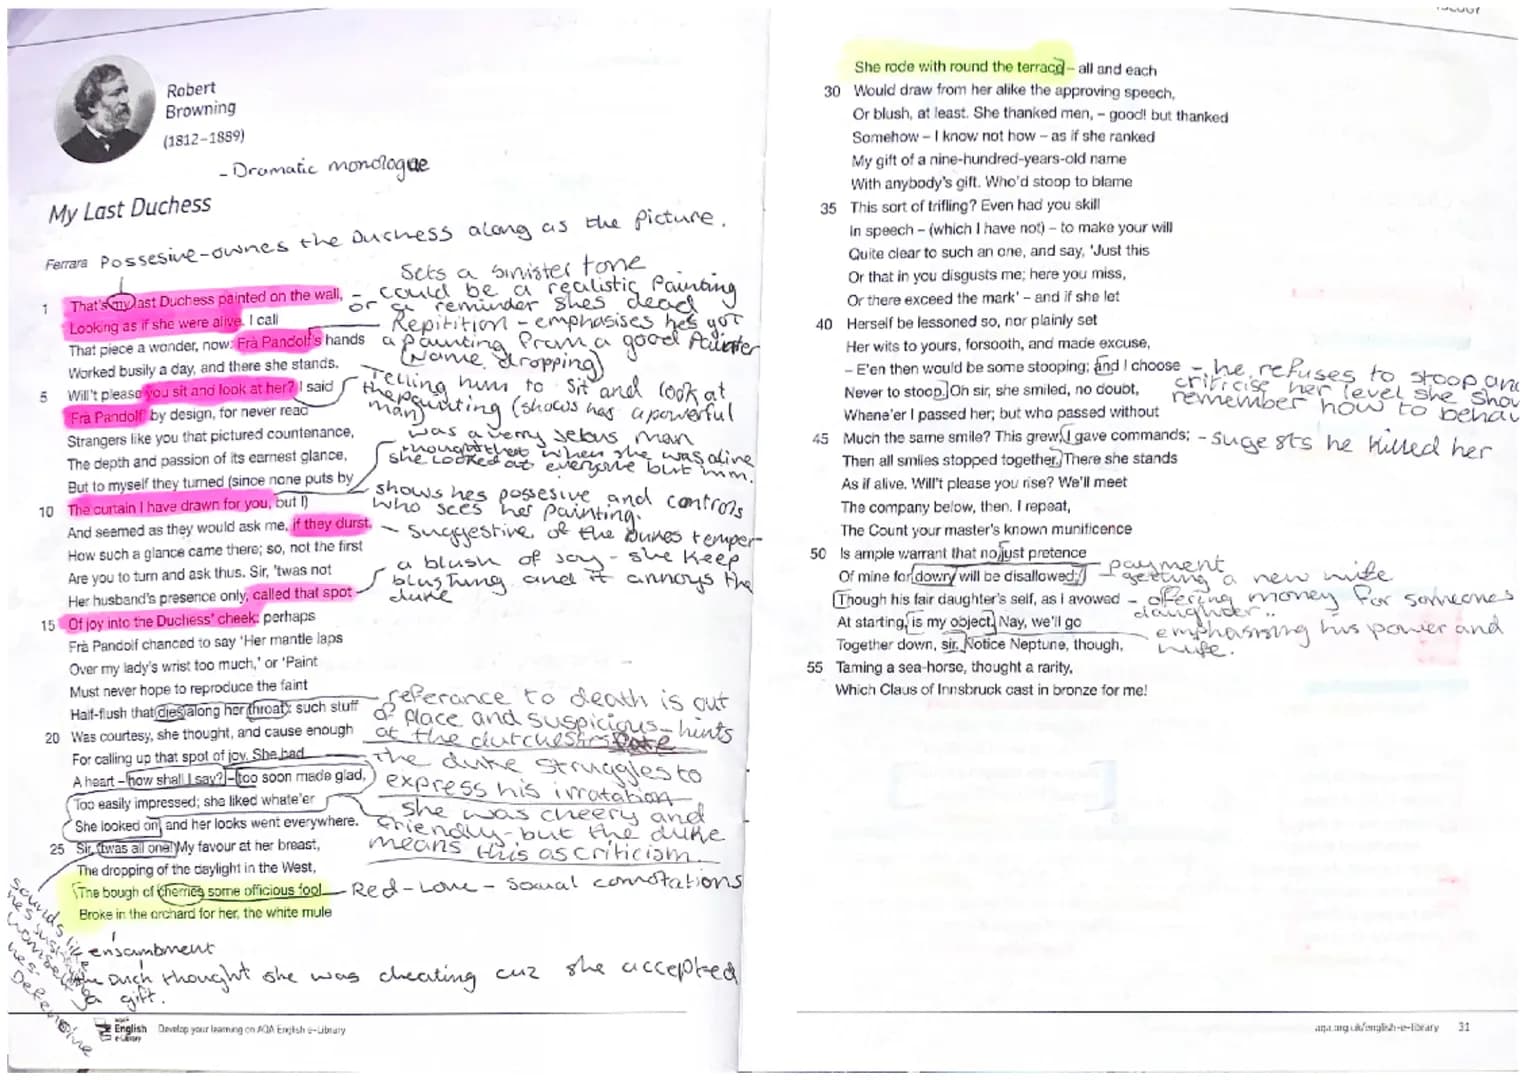 Robert
Browning
(1812–1889)
- Dramatic monologue
My Last Duchess
Ferrara
Possesive-ownes the Duchess along as the Picture.
1 That's my last Duchess painted on the wall,
Looking as if she were alive. I call
That piece a wonder, now: Frà Pandolf's hands
Worked busily a day, and there she stands.
5 Will't please you sit and look at her? I said
'Frà Pandolf' by design, for never read
Strangers like you that pictured countenance,
The depth and passion of its earnest glance,
But to myself they turned (since none puts by
10 The curtain I have drawn for you, but I)
And seemed as they would ask me, if they durst,
How such a glance came there; so, not the first
Are you to turn and ask thus. Sir, 'twas not
Her husband's presence only, called that spot
15 Of joy into the Duchess' cheek: perhaps
Frà Pandolf chanced to say 'Her mantle laps
Over my lady's wrist too much,' or 'Paint
Must never hope to reproduce the faint
Half-flush that dies along her throat': such stuff
20 Was courtesy, she thought, and cause enough
For calling up that spot of joy. She had
A heart – how shall I say? – too soon made glad,
Too easily impressed; she liked whate'er
She looked on, and her looks went everywhere.
25 Sir, 'twas all one! My favour at her breast,
The dropping of the daylight in the West,
The bough of cherries some officious fool
Broke in the orchard for her, the white mule
Sets a sinister tone
- could be a realistic Painting
or a reminder shes dead
Repitition - emphasises he's got
a painting from a good Painter
(Name dropping)
Telling him to sit and look at
the painting (shows hes a powerful
man)
was a very Jelous man
thought that when she was alive
she looked at everyone but him.
shows hes possesive and controls
who sees her Painting.
- suggestive of the Dukes temper
a blush of joy - she keep
blushing and it annoys the
duke
referance to death is out
of place and suspicious - hints
at the dutchess
the duke struggles to
express his irratation
she was cheery and
friendly - but the duke
means this as criticism.
Red - Love - sexual connotations
sounds like
Defensive
ensambment
the Duch thought she was cheating cuz she accepted
a gift.
English
e-Library
Develop your learning on AQA English e-Library
She rode with round the terrace – all and each
30 Would draw from her alike the approving speech,
Or blush, at least. She thanked men, – good! but thanked
Somehow – I know not how – as if she ranked
My gift of a nine-hundred-years-old name
With anybody's gift. Who'd stoop to blame
35 This sort of trifling? Even had you skill
In speech – (which I have not) – to make your will
Quite clear to such an one, and say, 'Just this
Or that in you disgusts me; here you miss,
Or there exceed the mark' – and if she let
40 Herself be lessoned so, nor plainly set
Her wits to yours, forsooth, and made excuse,
- E'en then would be some stooping; and I choose
Never to stoop. Oh sir, she smiled, no doubt,
Whene'er I passed her; but who passed without
45 Much the same smile? This grew; I gave commands;
Then all smiles stopped together. There she stands
As if alive. Will't please you rise? We'll meet
The company below, then. I repeat,
The Count your master's known munificence
50 Is ample warrant that no just pretence
Of mine for dowry will be disallowed;
Though his fair daughter's self, as I avowed
At starting, is my object. Nay, we'll go
Together down, sir. Notice Neptune, though,
55 Taming a sea-horse, thought a rarity,
Which Claus of Innsbruck cast in bronze for me!
- he refuses to stoop and
criticise her level she shou
remember how to behav
- sugests he killed her
payment
- getting a new wife
- offering money for someones
daughter..
emphasising his power and
wife.
aqa.org.uk/english-e-library 31